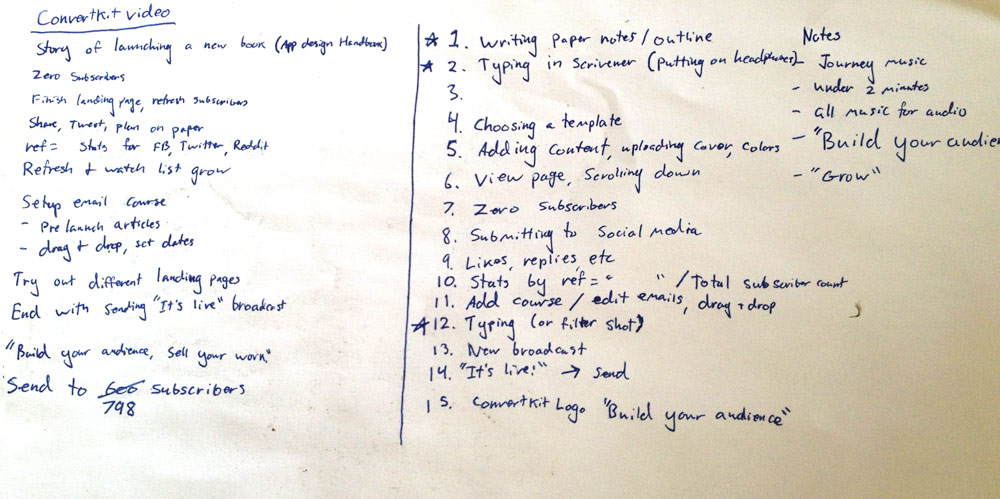 Convertkit video
Story of launching a new book (App design Handbook)
Zero Subscribers
Finish landing page, refresh subscribers
Share, Tweet, plan on paper
ref= Stats for FB, Twitter, Reddit
Refresh + watch list grow
Setup email course
- Pre launch articles
- drag + drop, set dates
Try out different landing pages
End with sending "It's live" broadcast
"Build your audience, sell your work"
Send to subscribers
798
☆ 1. Writing paper notes/outline
☆ 2. Typing in Scrivener (Putting on headphones)
3.
4. Choosing a template
5. Adding content, uploading cover, colors
6. View page, Scrolling down
7. Zero Subscribers
8. Submitting to Social media
9. Likes, replies, etc
10. Stats by ref= " " / Total subscriber count
11. Add course / edit emails, drag + drop
☆ 12. Typing (or filter shot)
13. New broadcast
14. "It's live!" → Send
15. ConvertKit Logo "Build your audience"
Notes
- Journey music
- under 2 minutes
- all music for audio
- "Build your audien
- "Grow"